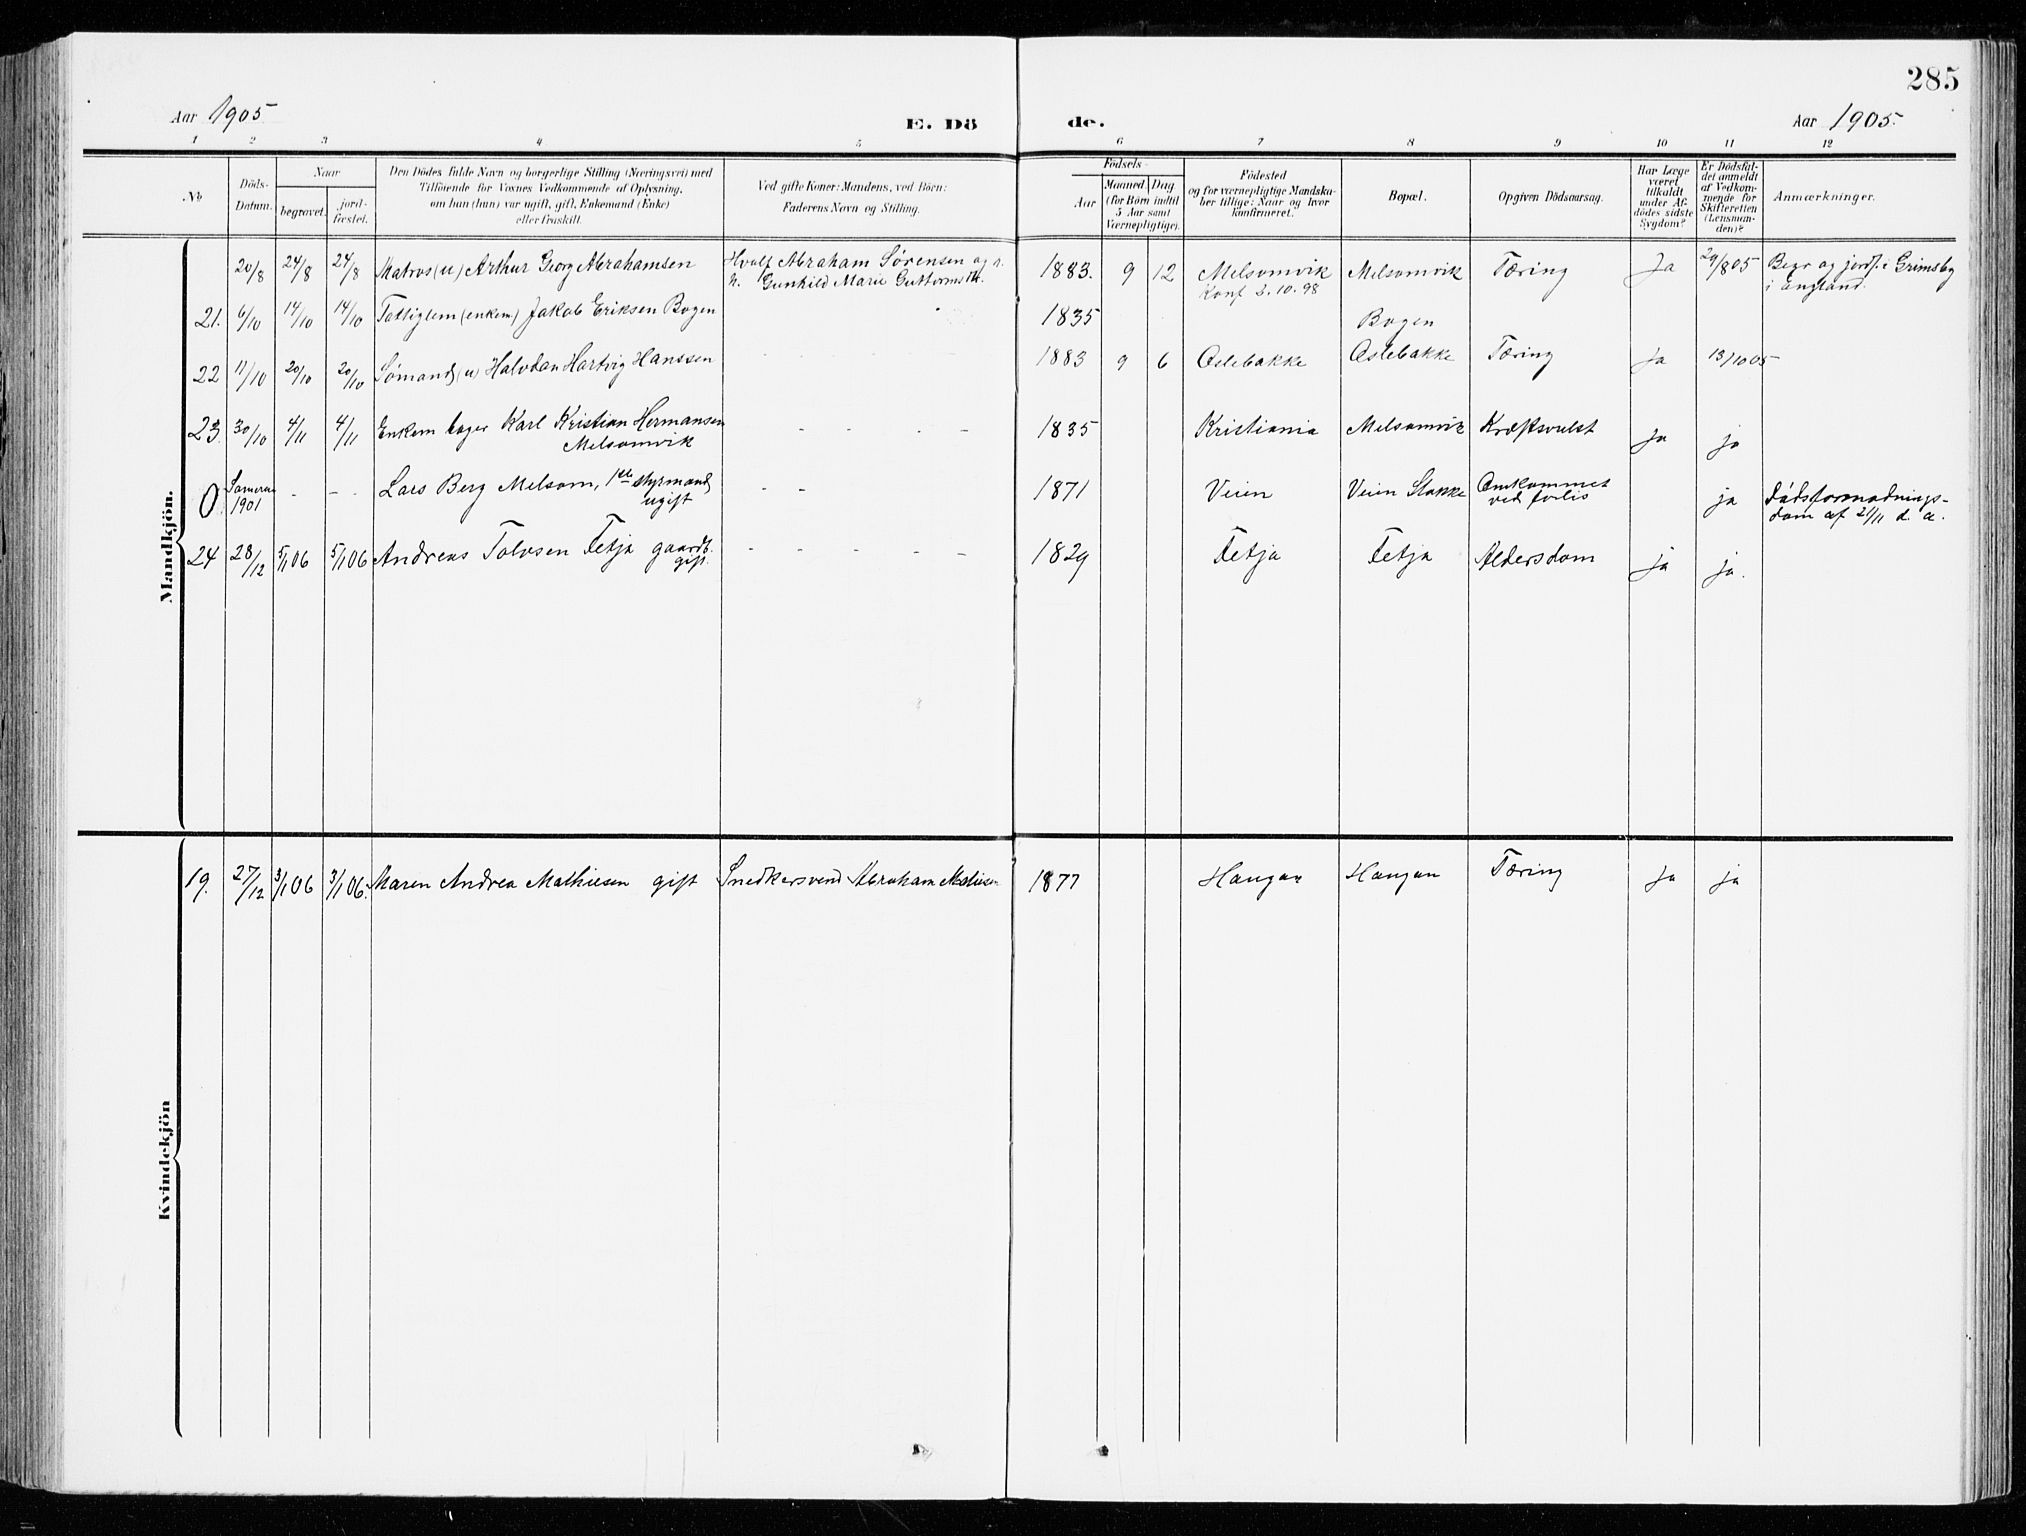 285
Aar 1905
E. Dö de.
Aar 1905.
1 2 3 4 5 6 7 8 9 10 11 12
No
Döds-
Datum.
Naar
begravet.
jord-
fæstet.
Den Dödes fulde Navn og borgerlige Stilling (Næringsvei) med
Tilföiende for Voxnes Vedkommende af Oplysning,
om han (hun) var ugift, gift, Enkemand (Enke)
eller fraskilt.
Ved gifte Koner: Mandens, ved Börn:
Faderens Navn og Stilling.
Födsels-
Aar
Maaned Dag
(for Börn indtil
5 Aar samt
Værnepligtige).
Födested
og for værnepligtige Mandska-
ber tillige: Naar og hvor
konfirmeret.
Bopæl.
Opgiven Dödsaarsag.
Har Læge
været
tilkaldt
under Af-
dödes sidste
Sygdom?
Er Dödsfal-
det anmeldt
af Vedkom-
mende for
Skifteretten
(Lensman-
den)?
Anmærkninger.
Mandkjön.
20/8 24/8 24/8 Matros (u) Arthur Georg Abrahamsen Hvalf Abraham Sørensen og 1883. 9 12 Melsomvik Melsomvik Tæring Ja 29/8 05 Begr og jordf. i Grimsby
h. Gunhild Marie Guttormsdt. Konf 2.10.98 i England.
21. 6/10 14/10 14/10 Fattiglem (enkem) Jakob Eriksen Bogen 1835 Bogen
22 11/10 20/10 20/10 Sømand (u) Halvdan Hartvig Hanssen 1883 9 6 Oslebakke Oslebakke Tæring Ja 13/10 05
23. 30/10 4/11 4/11 Enkem bager Karl Kristian Hermansen 1835 Kristiania Melsomvik Kræftsvulst Ja ja
Melsomvik
0. Someren - - - Lars Berg Melsom, 1ste styrmand - - 1871 Veien Veien Stokke Omkommet ja Dødsformodnings-
1901 ugift ved forlis dom af 21/11 d. a.
24 28/12 5/1 06 5/1 06 Andreas Tolvsen Fetja gaardb. - - - - - 1829 Fetja Fetja Aldersdom ja ja.
gift.
Kvindekjön
19. 27/12 3/1 06 3/1 06. Maren Andrea Mathiesen gift Snedkersvend Abraham Mathiesen 1877 Haugan Haugan Tæring Ja ja